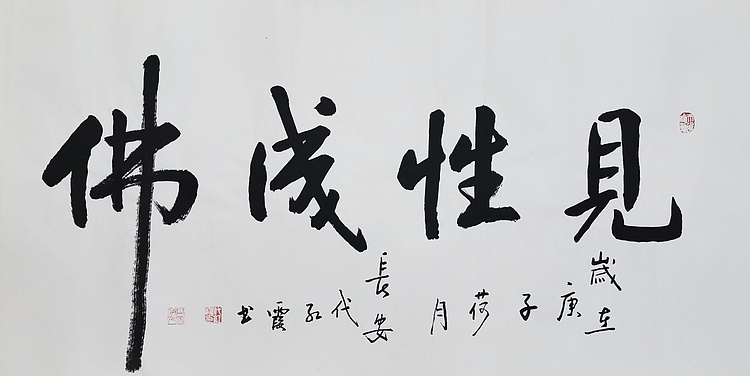 見性成佛
歲在庚子荷月長安代紅霞书